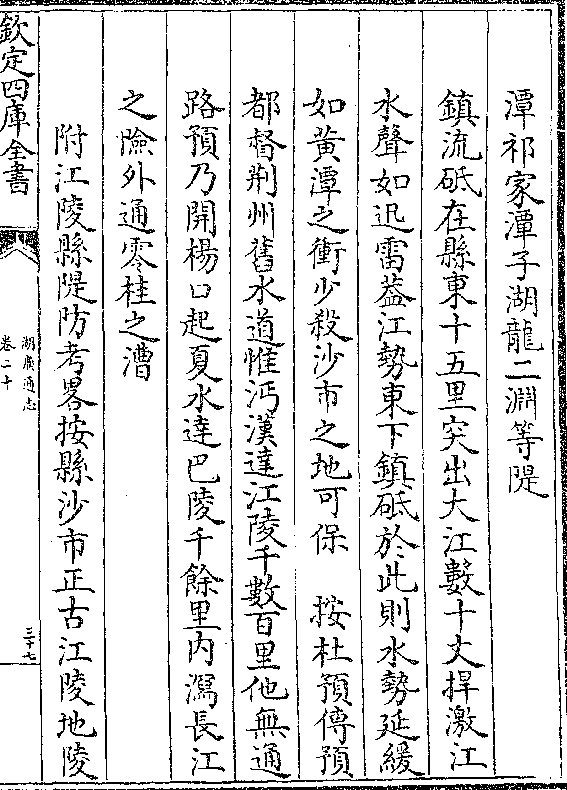 潭祁家潭子湖龍二淵等隄
鎮流砥在縣東十五里突出大江數十丈捍激江
水聲如迅雷葢江勢東下鎮砥於此則水勢延緩
如黃潭之衝少殺沙市之地可保　按杜預傳預
都督荆州舊水道惟沔漢達江陵千數百里他無通
路預乃開楊口起夏水達巴陵千餘里内瀉長江
之險外通零桂之漕
附江陵縣隄防考畧按縣沙市正古江陵地陵
欽定四庫全書
湖廣通志
卷二十
三十七